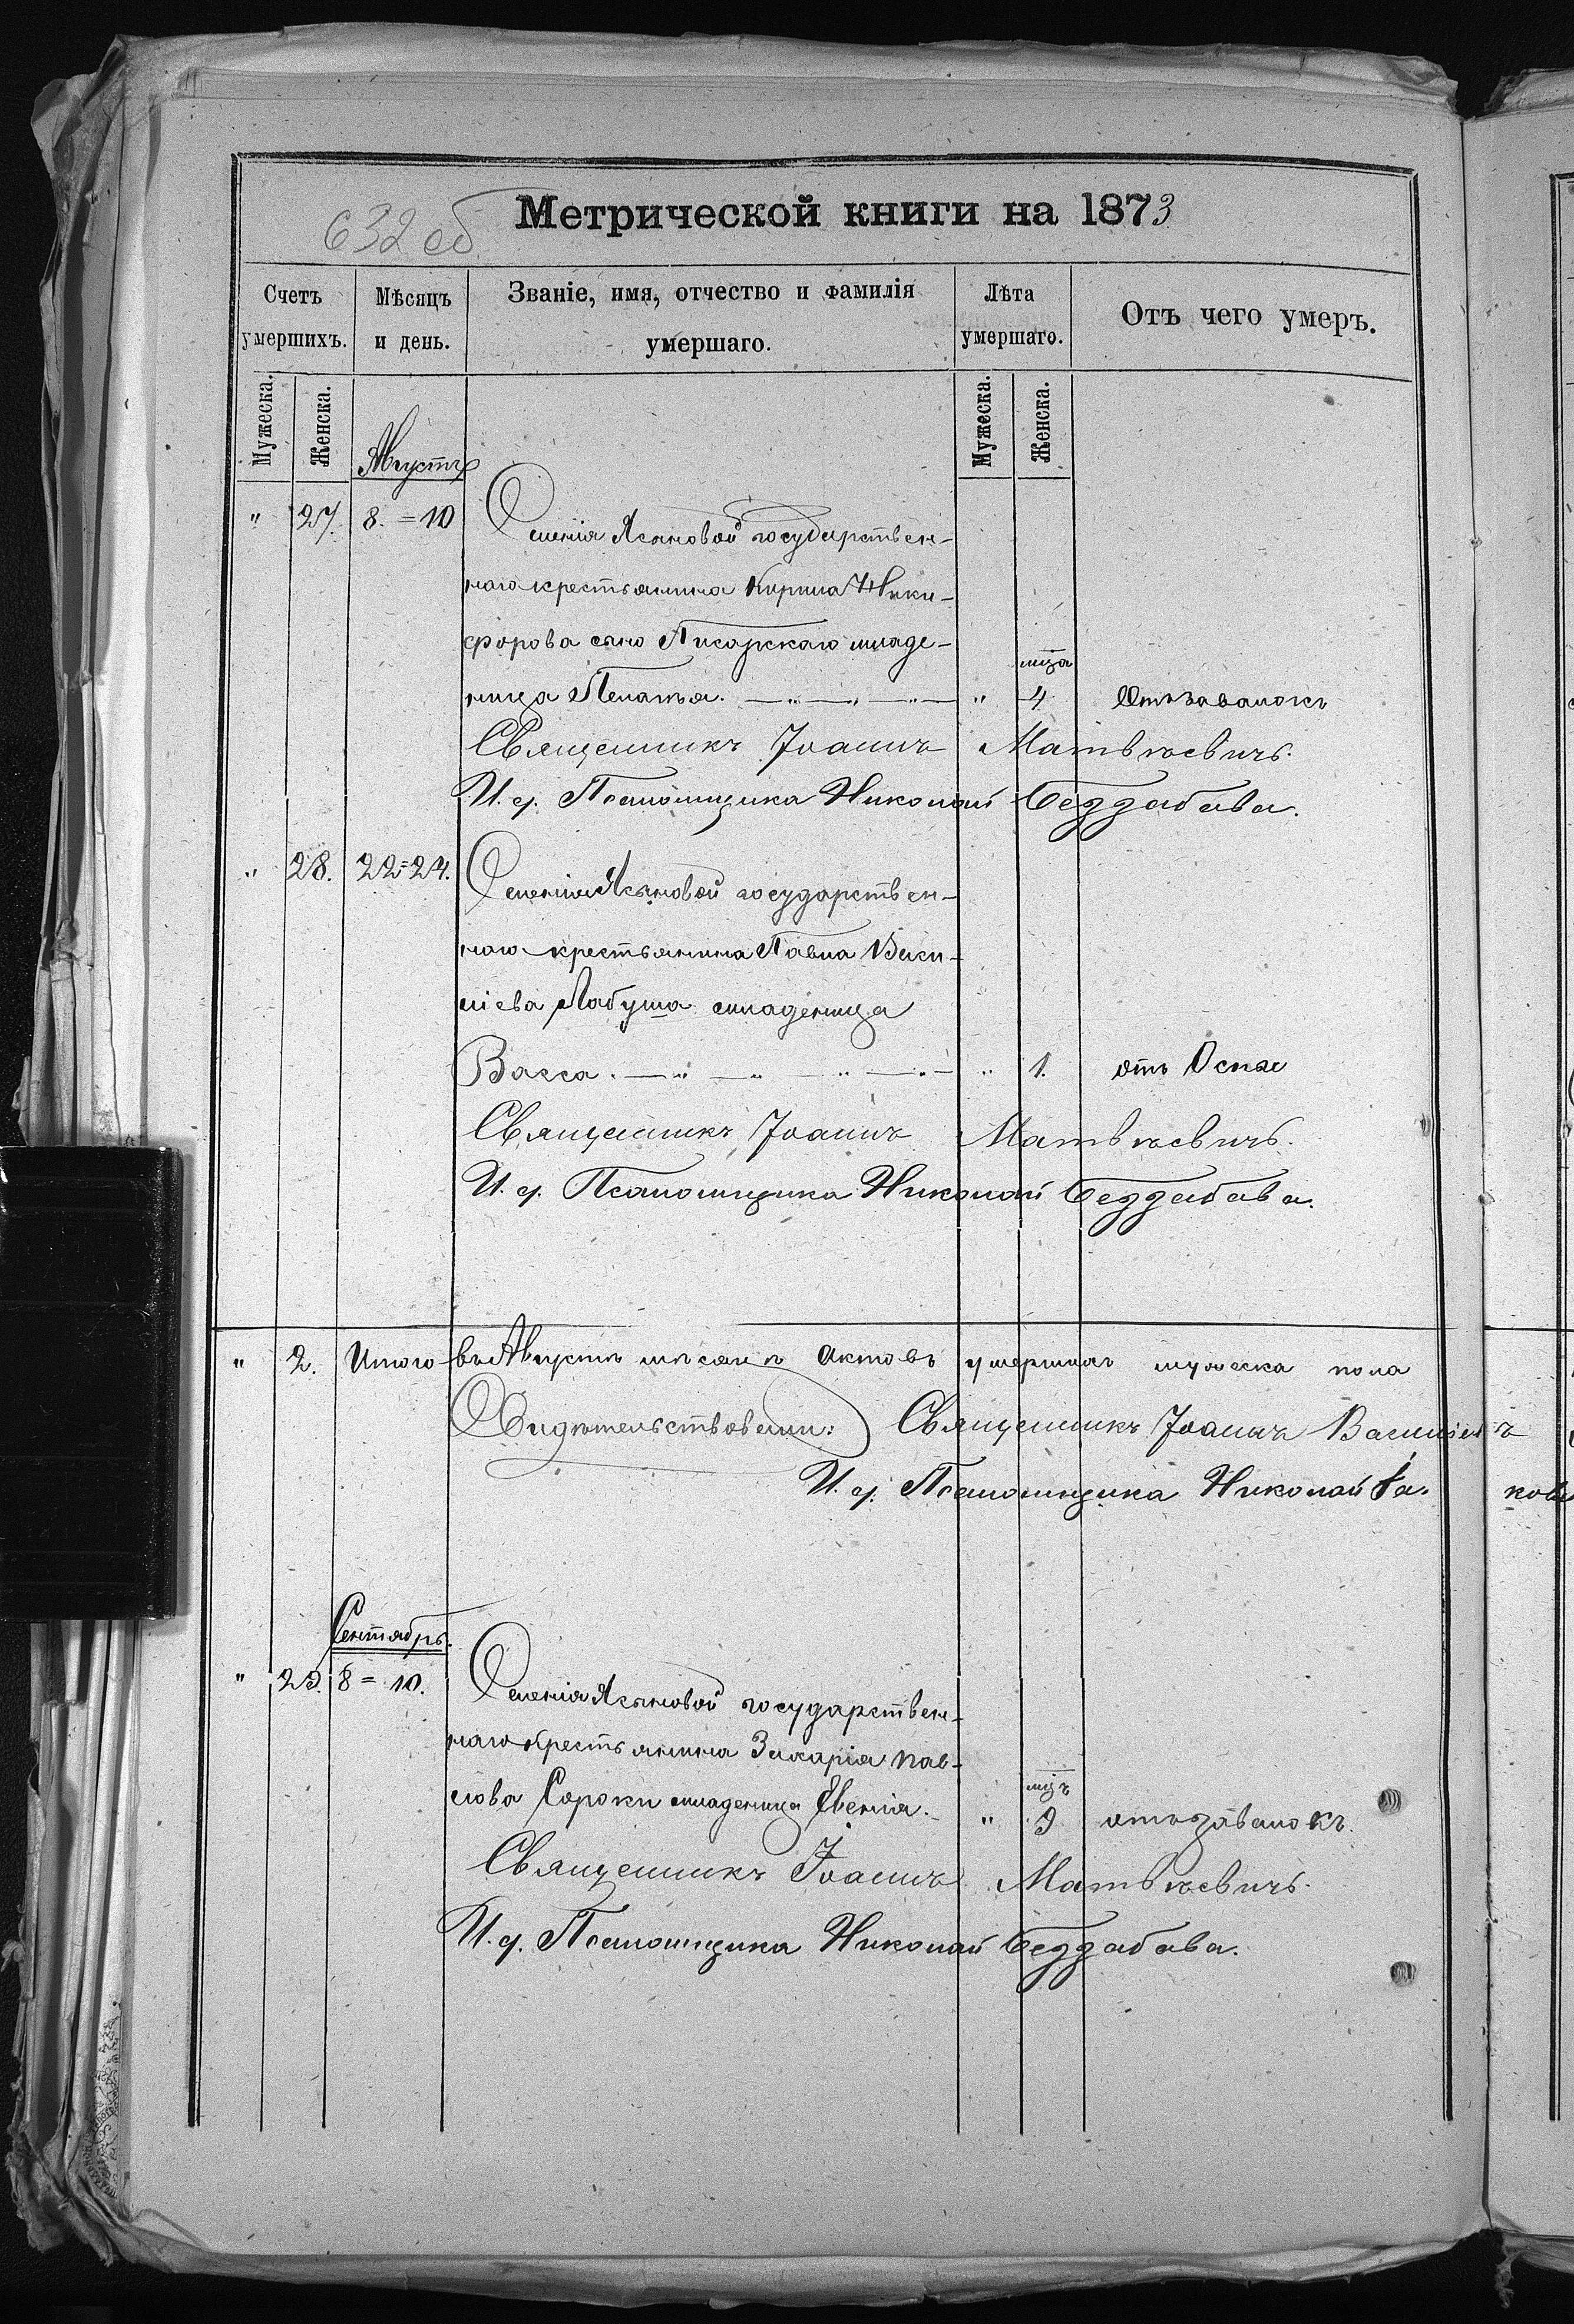 632 об
Метрической книги на 1873
Счетъ умершихъ.
Мѣсяцъ и день.
Званіе, имя, отчество и фамилія умершаго.
Лѣта умершаго.
Отъ чего умеръ.
Мужеска.
Женска.
Мужеска.
Женска.
Августъ
" 27. 8.=10 Селенія Ясеновой государствен-
наго крестьянина Кирила Ники-
форова сына младе-
ница Пелагья. " 4 мца Отъ завалокъ
Священникъ Іоаннъ Матвѣевичъ.
И. д. Псаломщика Николай Беззабава.
" 28. 22=24. Селенія Ясеновой государствен-
наго крестьянина Павла Васи-
ліева Лабуша младеница
Васса. " 1. отъ Оспы
Священникъ Іоаннъ Матвѣевичъ.
И. д. Псаломщика Николай Беззабава.
" 2. Итого въ Августѣ мѣсяцѣ актовъ умершихъ мужеска пола
Свидѣтельствовали: Священникъ Іоаннъ
И. д. Псаломщика Николай
Сентябрь.
" 29. 8=10. Селенія Ясеновой государствен-
наго крестьянина Захарія Пав-
лова Сороки младеница Евгенія. " 9 мцъ отъ завалокъ.
Священникъ Іоаннъ Матвѣевичъ.
И. д. Псаломщика Николай Беззабава.